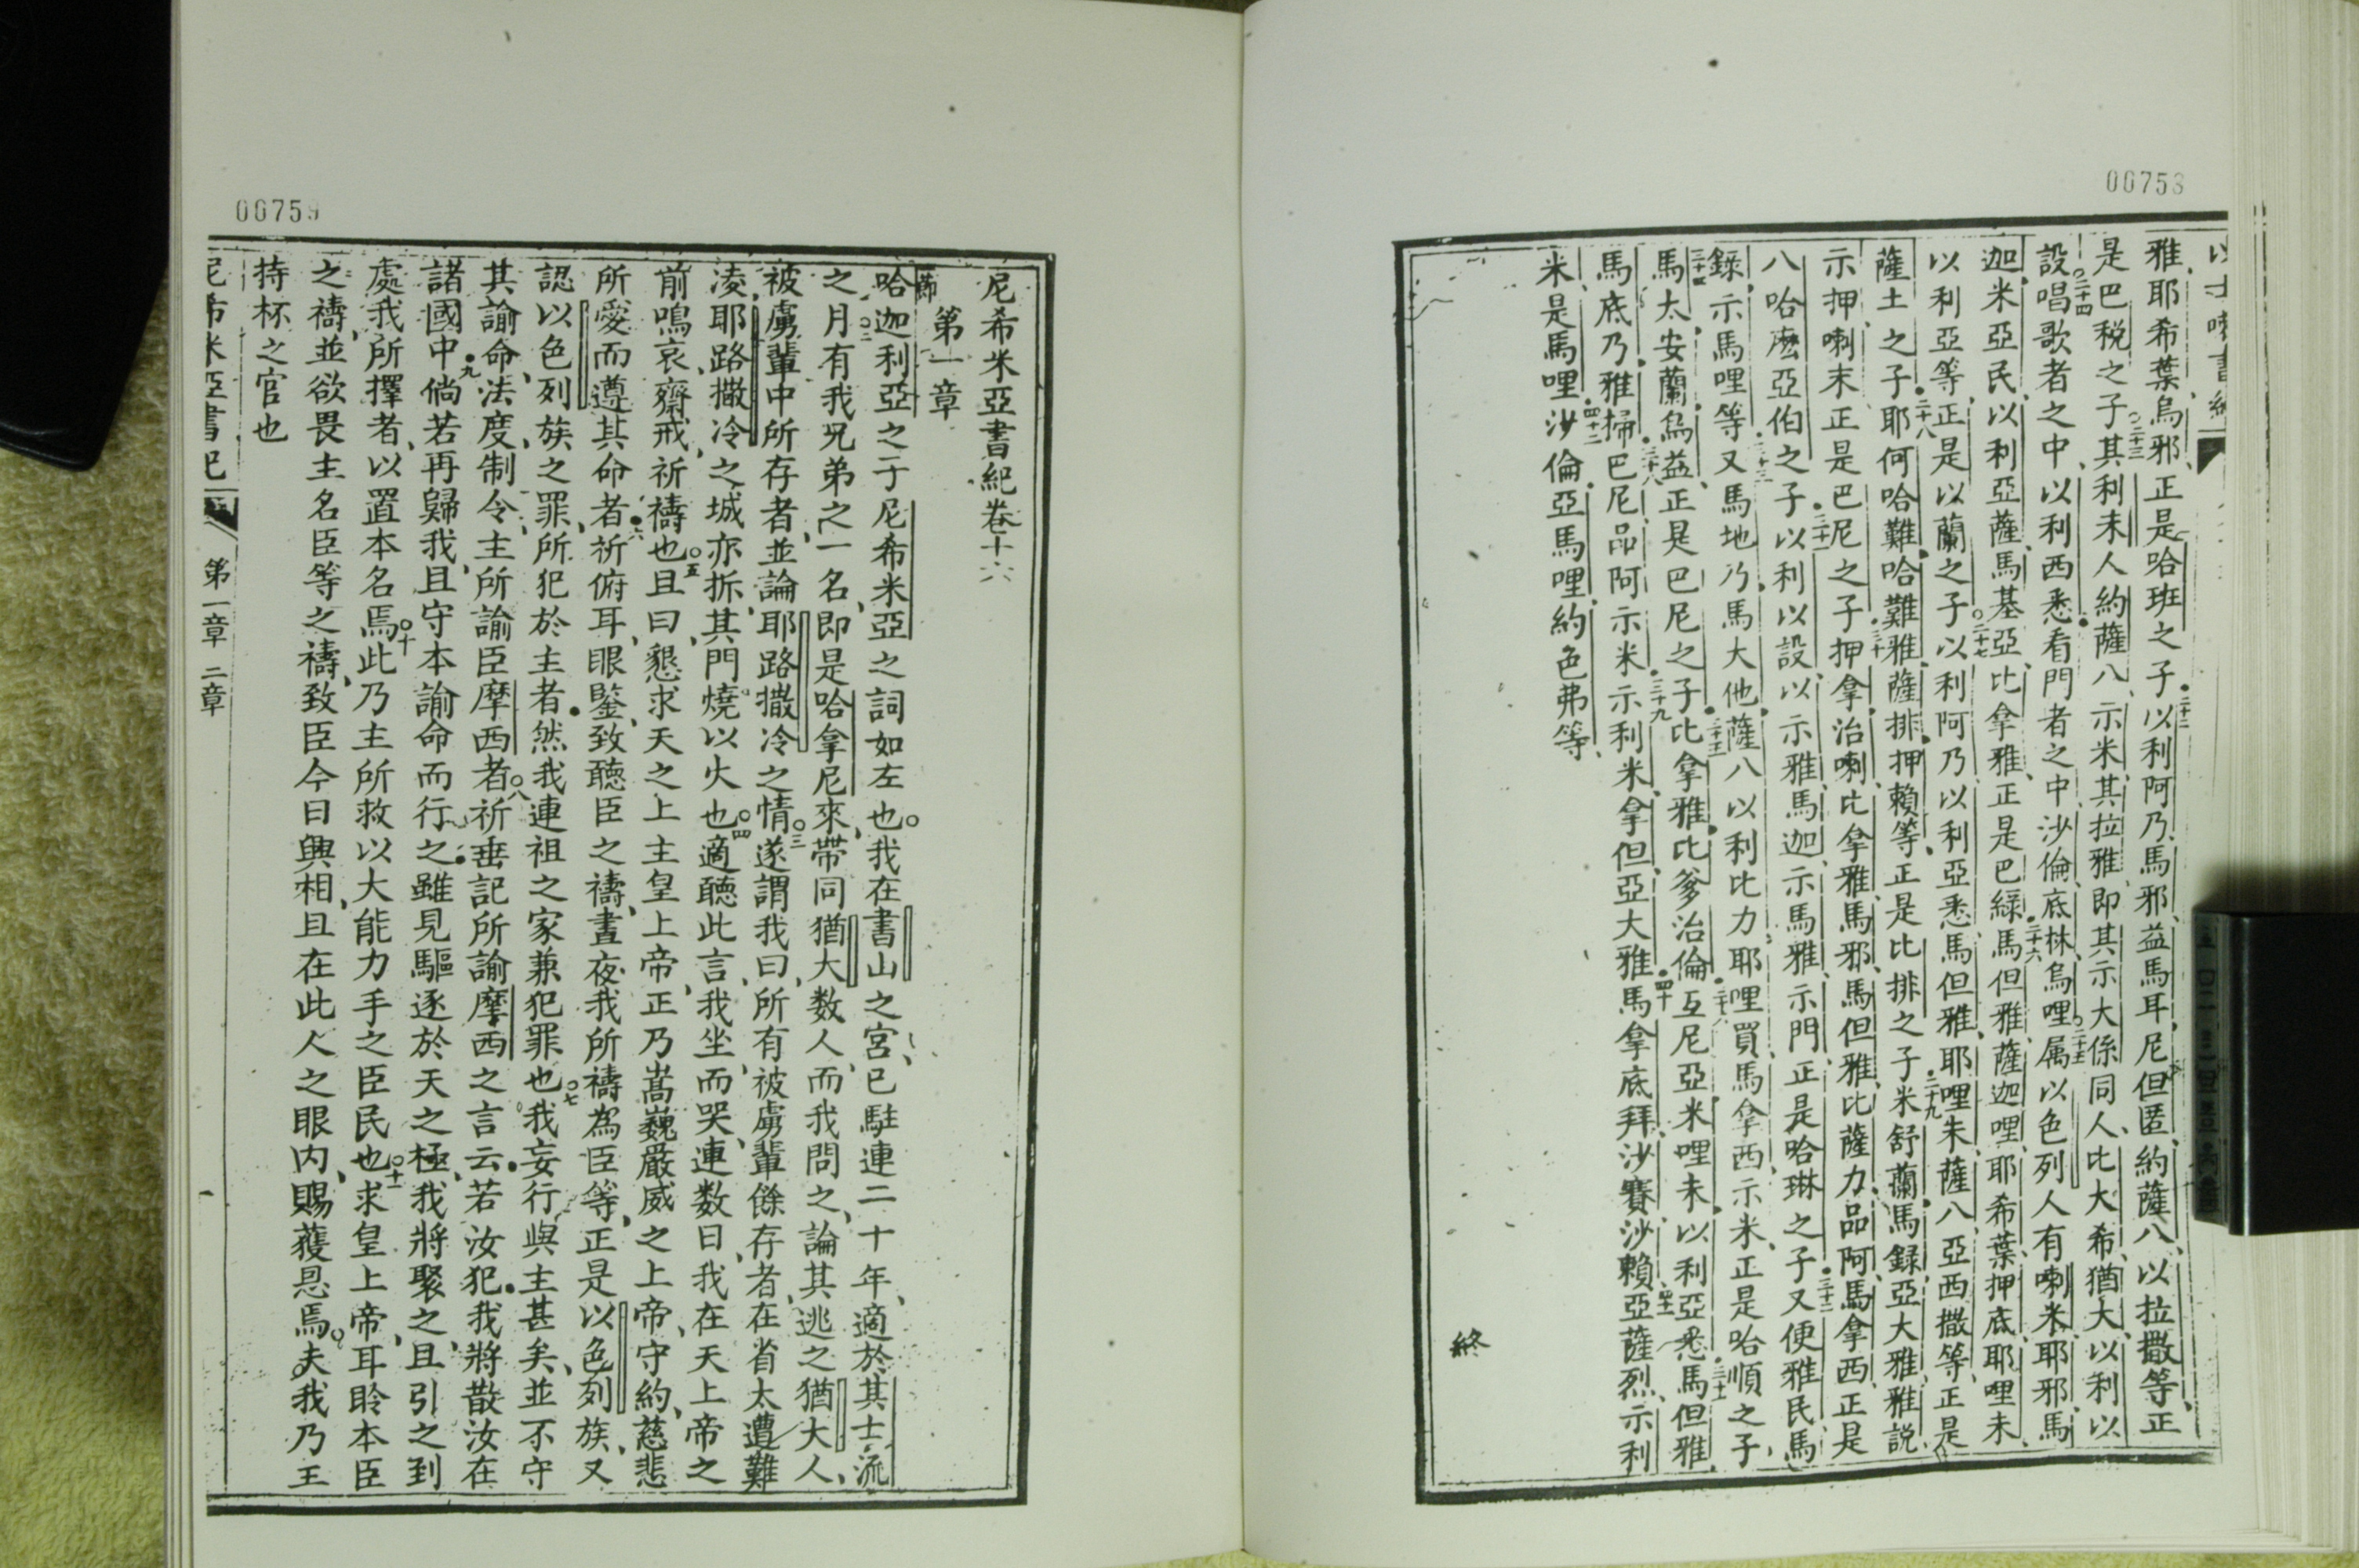 00758
雅耶希葉烏邪正是哈班之子二十二以利阿乃馬邪益馬耳尼但匿約薩八以拉撒等正
是巴稅之子二十三其利未人約薩八示米其拉雅即其示大係同人比大希猶大以利以
二十四設唱歌者之中以利西悉看門者之中沙倫底林烏哩二十五属以色列人有喇米耶邪馬
迦米亞民以利亞薩馬基亞比拿雅正是巴綠二十六馬但雅薩迦哩耶希葉押底耶哩未
以利亞等正是以蘭之子二十七以利阿乃以利亞悉馬但雅耶哩朱薩八亞西撒等正是
薩土之子二十八耶何哈難哈難雅薩排押賴等正是比排之子二十九米舒蘭馬録亞大雅雅説
示押喇末正是巴尼之子三十押拿治喇比拿雅馬邪馬但雅比薩力品阿馬拿西正是
八哈麽亞伯之子三十一以利以設以示雅馬迦示馬雅示門正是哈琳之子三十二又便雅民馬
錄示馬哩等三十三又馬地乃馬大他薩八以利比力耶哩買馬拿西示米正是哈順之子
三十四馬太安蘭烏益正是巴尼之子三十五比拿雅比爹治倫三十六互尼亞米哩未以利亞悉三十七馬但雅
馬底乃雅掃三十八巴尼品阿示米三十九示利米拿但亞大雅四十馬拿底拜沙賽沙賴四十一亞薩烈示利
米是馬哩四十二沙倫亞馬哩約色弗等
終
00759
尼希米亞書紀卷十六
第一章
節哈迦利亞之子尼希米亞之詞如左也我在書山之宮已駐連二十年適於其士流
之月二有我兄弟之一名即是哈拿尼來帶同猶大数人而我問之論其逃之猶大人
被虜輩中所存者並論耶路撒冷之情三遂謂我曰所有被虜輩餘存者在省太遭難
凌耶路撒冷之城亦拆其門燒以火也四適聽此言我坐而哭連数日我在天上帝之
前鳴哀齋戒祈禱也五且曰懇求天之上主皇上帝正乃嵩巍嚴威之上帝守約慈悲
所愛而遵其命者六祈俯耳眼鑒致聽臣之禱晝夜我所禱為臣等正是以色列族又
認以色列族之罪所犯於主者然我連祖之家兼犯罪也七我妄行與主甚矣並不守
其諭命法度制令主所諭臣摩西者八祈垂記所諭摩西之言云若汝犯我將散汝在
諸國中九倘若再歸我且守本諭命而行之雖見驅逐於天之極我將聚之且引之到
處我所擇者以置本名焉十此乃主所救以大能力手之臣民也十一求皇上帝耳聆本臣
之禱並欲畏主名臣等之禱致臣今日興相且在此人之眼内賜獲恩焉夫我乃王
持杯之官也
尼希米亞書紀
第一章 二章